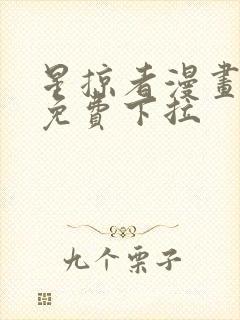 星掠者漫畫
免費下拉
九个栗子